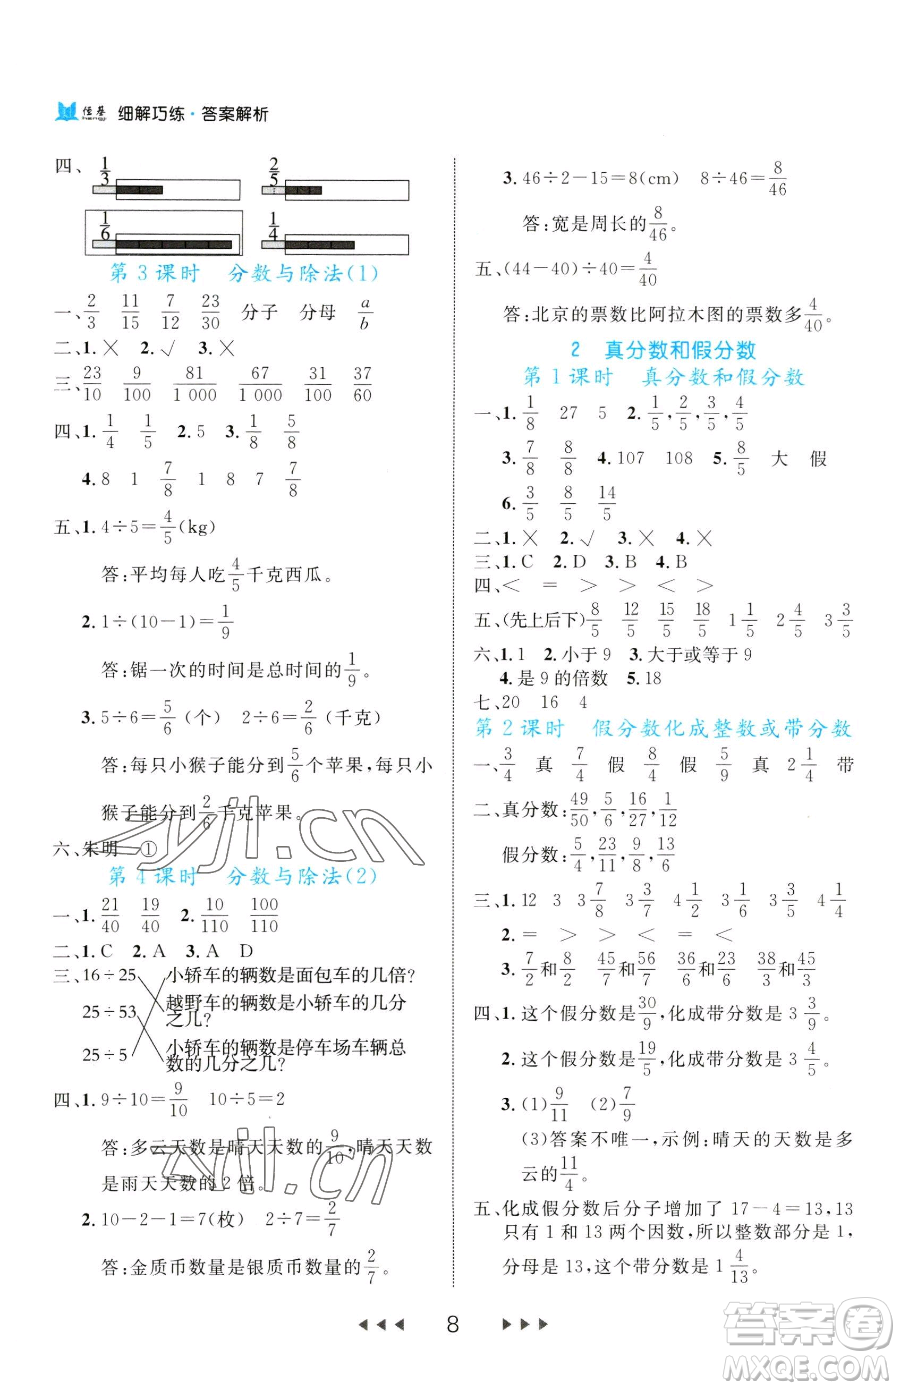 恒基 细解巧练·答案解析
四、 1/3 2/5
1/6 1/4
第3课时 分数与除法(1)
一、2/3 11/15 7/12 23/30 分子 分母 a/b
二、1.✕ 2.√ 3.✕
三、23/10 9/100 81/1 000 247/1 000 31/60 37/60
四、1.1/4 1/5 2.5 3.1/8 5/8
4.8 1 7/8 1 8 7 7/8
五、1.4÷5=4/5(kg)
答:平均每人吃4/5千克西瓜。
2.1÷(10-1)=1/9
答:锯一次的时间是总时间的1/9。
3.5÷6=5/6(个) 2÷6=2/6(千克)
答:每只小猴子能分到5/6个苹果,每只小
猴子能分到2/6千克苹果。
六、朱明 ①
第4课时 分数与除法(2)
一、1.21/40 19/40 2.10/110 100/110
二、1.C 2.A 3.A D
三、16÷25 小轿车的辆数是面包车的几倍?
25÷53 越野车的辆数是小轿车的几分
之几?
25÷5 小轿车的辆数是停车场车辆总
数的几分之几?
四、1.9÷10=9/10 10÷5=2
答:多云天数是晴天天数的9/10,晴天天数
是雨天天数的2倍。
2.10-2-1=7(枚) 2÷7=2/7
答:金质币数量是银质币数量的2/7。
3.46÷2-15=8(cm) 8÷46=8/46
答:宽是周长的8/46。
五、(44-40)÷40=4/40
答:北京的票数比阿拉木图的票数多4/40。
2 真分数和假分数
第1课时 真分数和假分数
一、1.1/8 27 5 2.1/5,2/5,3/5,4/5
3.7/8 8/8 4.107 108 5.8/5 大 假
6.3/5 8/5 14/5
二、1.✕ 2.√ 3.✕ 4.✕
三、1.C 2.D 3.B 4.B
四、< = > > < >
五、(先上后下)8/5 12/5 15/5 18/5 1 1/5 2 4/5 3 3/5
六、1.1 2.小于9 3.大于或等于9
4.是9的倍数 5.18
七、20 16 4
第2课时 假分数化成整数或带分数
一、3/4 真 7/4 假 8/4 假 5/9 真 2 1/4 带
二、真分数:49/50,5/6,16/27,1/12
假分数:5/4,23/23,13/8,9/6
三、1.12 3 3 7/8 3 3/7 4 2/3 3 1/6 3 3/5 4 1/4
2.= > < > >
3.7/2和8/2 45/7和46/7 36/6和38/6 23/4和24/4
四、1.这个假分数是30/9,化成带分数是3 3/9。
2.这个假分数是19/5,化成带分数是3 4/5。
3.(1)9/11 (2)7/9
(3)答案不唯一,示例:晴天的天数是多
云的11/4。
五、化成假分数后分子增加了17-4=13,13
只有1和13两个因数,所以整数部分是1,
分母是13,这个带分数是1 4/13。
8
zyjl.cn
zyjl.cn
答案圈
MXQE.COM